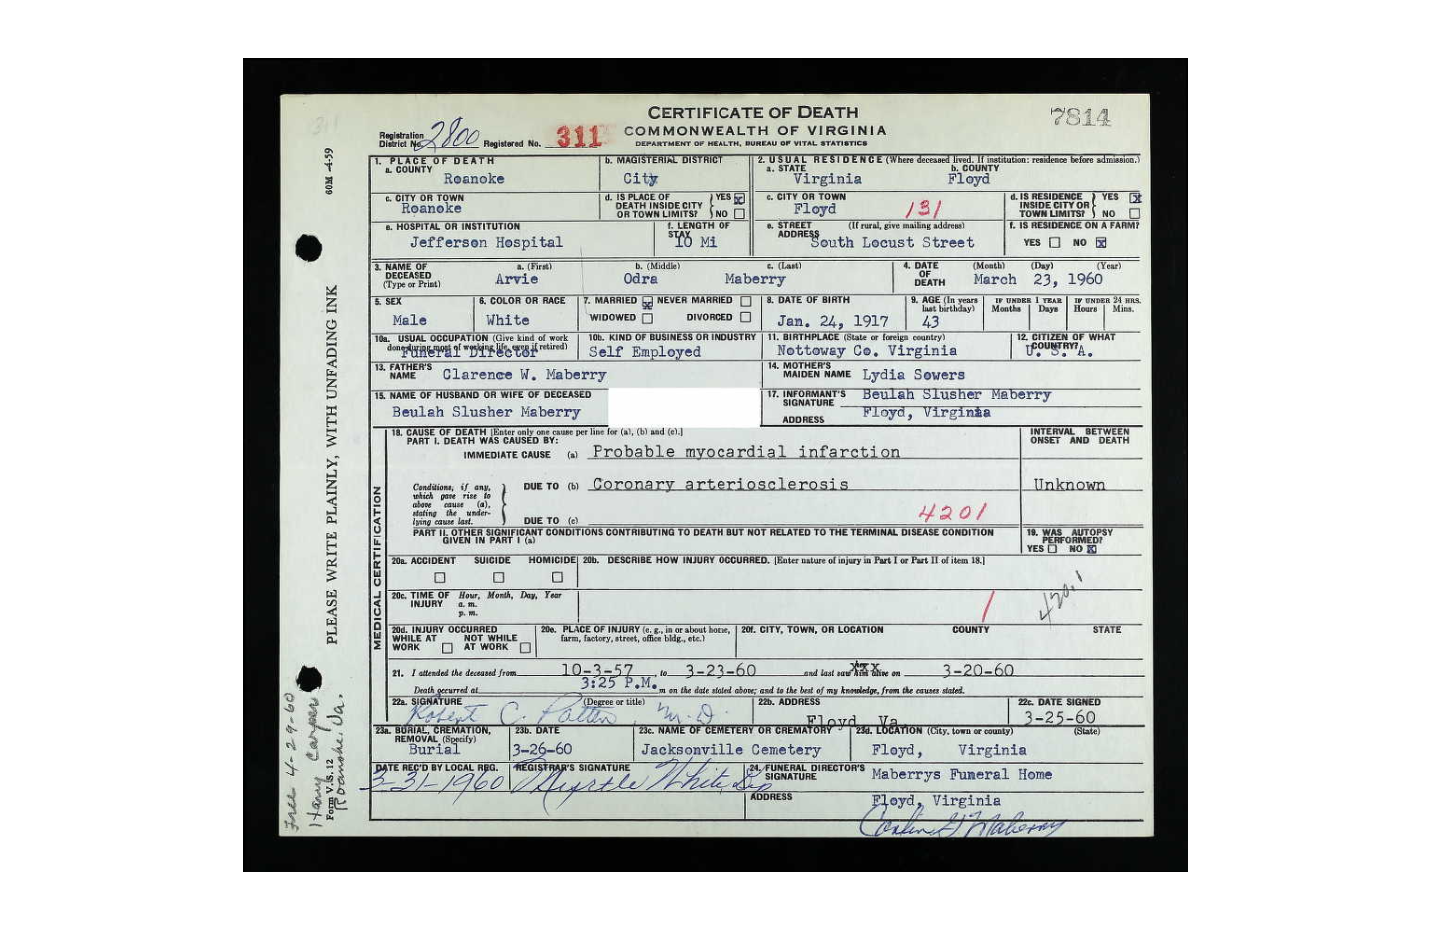 CERTIFICATE OF DEATH
COMMONWEALTH OF VIRGINIA
DEPARTMENT OF HEALTH, BUREAU OF VITAL STATISTICS
7814
Registration District No. 2800 Registered No. 311
60M -4-59
PLEASE WRITE PLAINLY, WITH UNFADING INK
Form V.S. 12
Free 4-29-60
Roanoke. Va.
1. PLACE OF DEATH
a. COUNTY
Roanoke
b. MAGISTERIAL DISTRICT
City
2. USUAL RESIDENCE (Where deceased lived. If institution: residence before admission.)
a. STATE
Virginia
b. COUNTY
Floyd
c. CITY OR TOWN
Roanoke
d. IS PLACE OF DEATH INSIDE CITY OR TOWN LIMITS? YES NO
c. CITY OR TOWN
Floyd 131
d. IS RESIDENCE INSIDE CITY OR TOWN LIMITS? YES NO
e. HOSPITAL OR INSTITUTION
Jefferson Hospital
f. LENGTH OF STAY
10 Mi
e. STREET ADDRESS (If rural, give mailing address)
South Locust Street
f. IS RESIDENCE ON A FARM?
YES NO
3. NAME OF DECEASED (Type or Print)
a. (First) b. (Middle) c. (Last)
Arvie Odra Maberry
4. DATE OF DEATH (Month) (Day) (Year)
March 23, 1960
5. SEX
Male
6. COLOR OR RACE
White
7. MARRIED NEVER MARRIED
WIDOWED DIVORCED
8. DATE OF BIRTH
Jan. 24, 1917
9. AGE (In years last birthday)
43
IF UNDER 1 YEAR
Months Days
IF UNDER 24 HRS.
Hours Mins.
10a. USUAL OCCUPATION (Give kind of work done during most of working life, even if retired)
Funeral Director
10b. KIND OF BUSINESS OR INDUSTRY
Self Employed
11. BIRTHPLACE (State or foreign country)
Nottoway Co. Virginia
12. CITIZEN OF WHAT COUNTRY?
U. S. A.
13. FATHER'S NAME Clarence W. Maberry
14. MOTHER'S MAIDEN NAME Lydia Sowers
15. NAME OF HUSBAND OR WIFE OF DECEASED
Beulah Slusher Maberry
17. INFORMANT'S SIGNATURE Beulah Slusher Maberry
ADDRESS Floyd, Virginia
MEDICAL CERTIFICATION
18. CAUSE OF DEATH [Enter only one cause per line for (a), (b) and (c).]
PART I. DEATH WAS CAUSED BY:
IMMEDIATE CAUSE (a) Probable myocardial infarction
INTERVAL BETWEEN ONSET AND DEATH
Conditions, if any, which gave rise to above cause (a), stating the underlying cause last.
DUE TO (b) Coronary arteriosclerosis
Unknown
DUE TO (c)
4201
PART II. OTHER SIGNIFICANT CONDITIONS CONTRIBUTING TO DEATH BUT NOT RELATED TO THE TERMINAL DISEASE CONDITION GIVEN IN PART I (a)
19. WAS AUTOPSY PERFORMED?
YES NO
20a. ACCIDENT SUICIDE HOMICIDE
20b. DESCRIBE HOW INJURY OCCURRED. [Enter nature of injury in Part I or Part II of item 18.]
20c. TIME OF INJURY Hour, Month, Day, Year
a. m.
p. m.
1
420.1
20d. INJURY OCCURRED
WHILE AT WORK NOT WHILE AT WORK
20e. PLACE OF INJURY (e. g., in or about home, farm, factory, street, office bldg., etc.)
20f. CITY, TOWN, OR LOCATION COUNTY STATE
21. I attended the deceased from 10-3-57 to 3-23-60 and last saw him alive on 3-20-60
Death occurred at 3:25 P.M. m on the date stated above; and to the best of my knowledge, from the causes stated.
22a. SIGNATURE (Degree or title)
Robert C. Patten, M.D.
22b. ADDRESS
Floyd, Va.
22c. DATE SIGNED
3-25-60
23a. BURIAL, CREMATION, REMOVAL (Specify)
Burial
23b. DATE
3-26-60
23c. NAME OF CEMETERY OR CREMATORY
Jacksonville Cemetery
23d. LOCATION (City, town or county) (State)
Floyd, Virginia
DATE REC'D BY LOCAL REG.
3-31-1960
REGISTRAR'S SIGNATURE
Myrtle White, Dep
24. FUNERAL DIRECTOR'S SIGNATURE
Maberrys Funeral Home
ADDRESS
Floyd, Virginia
Maberry